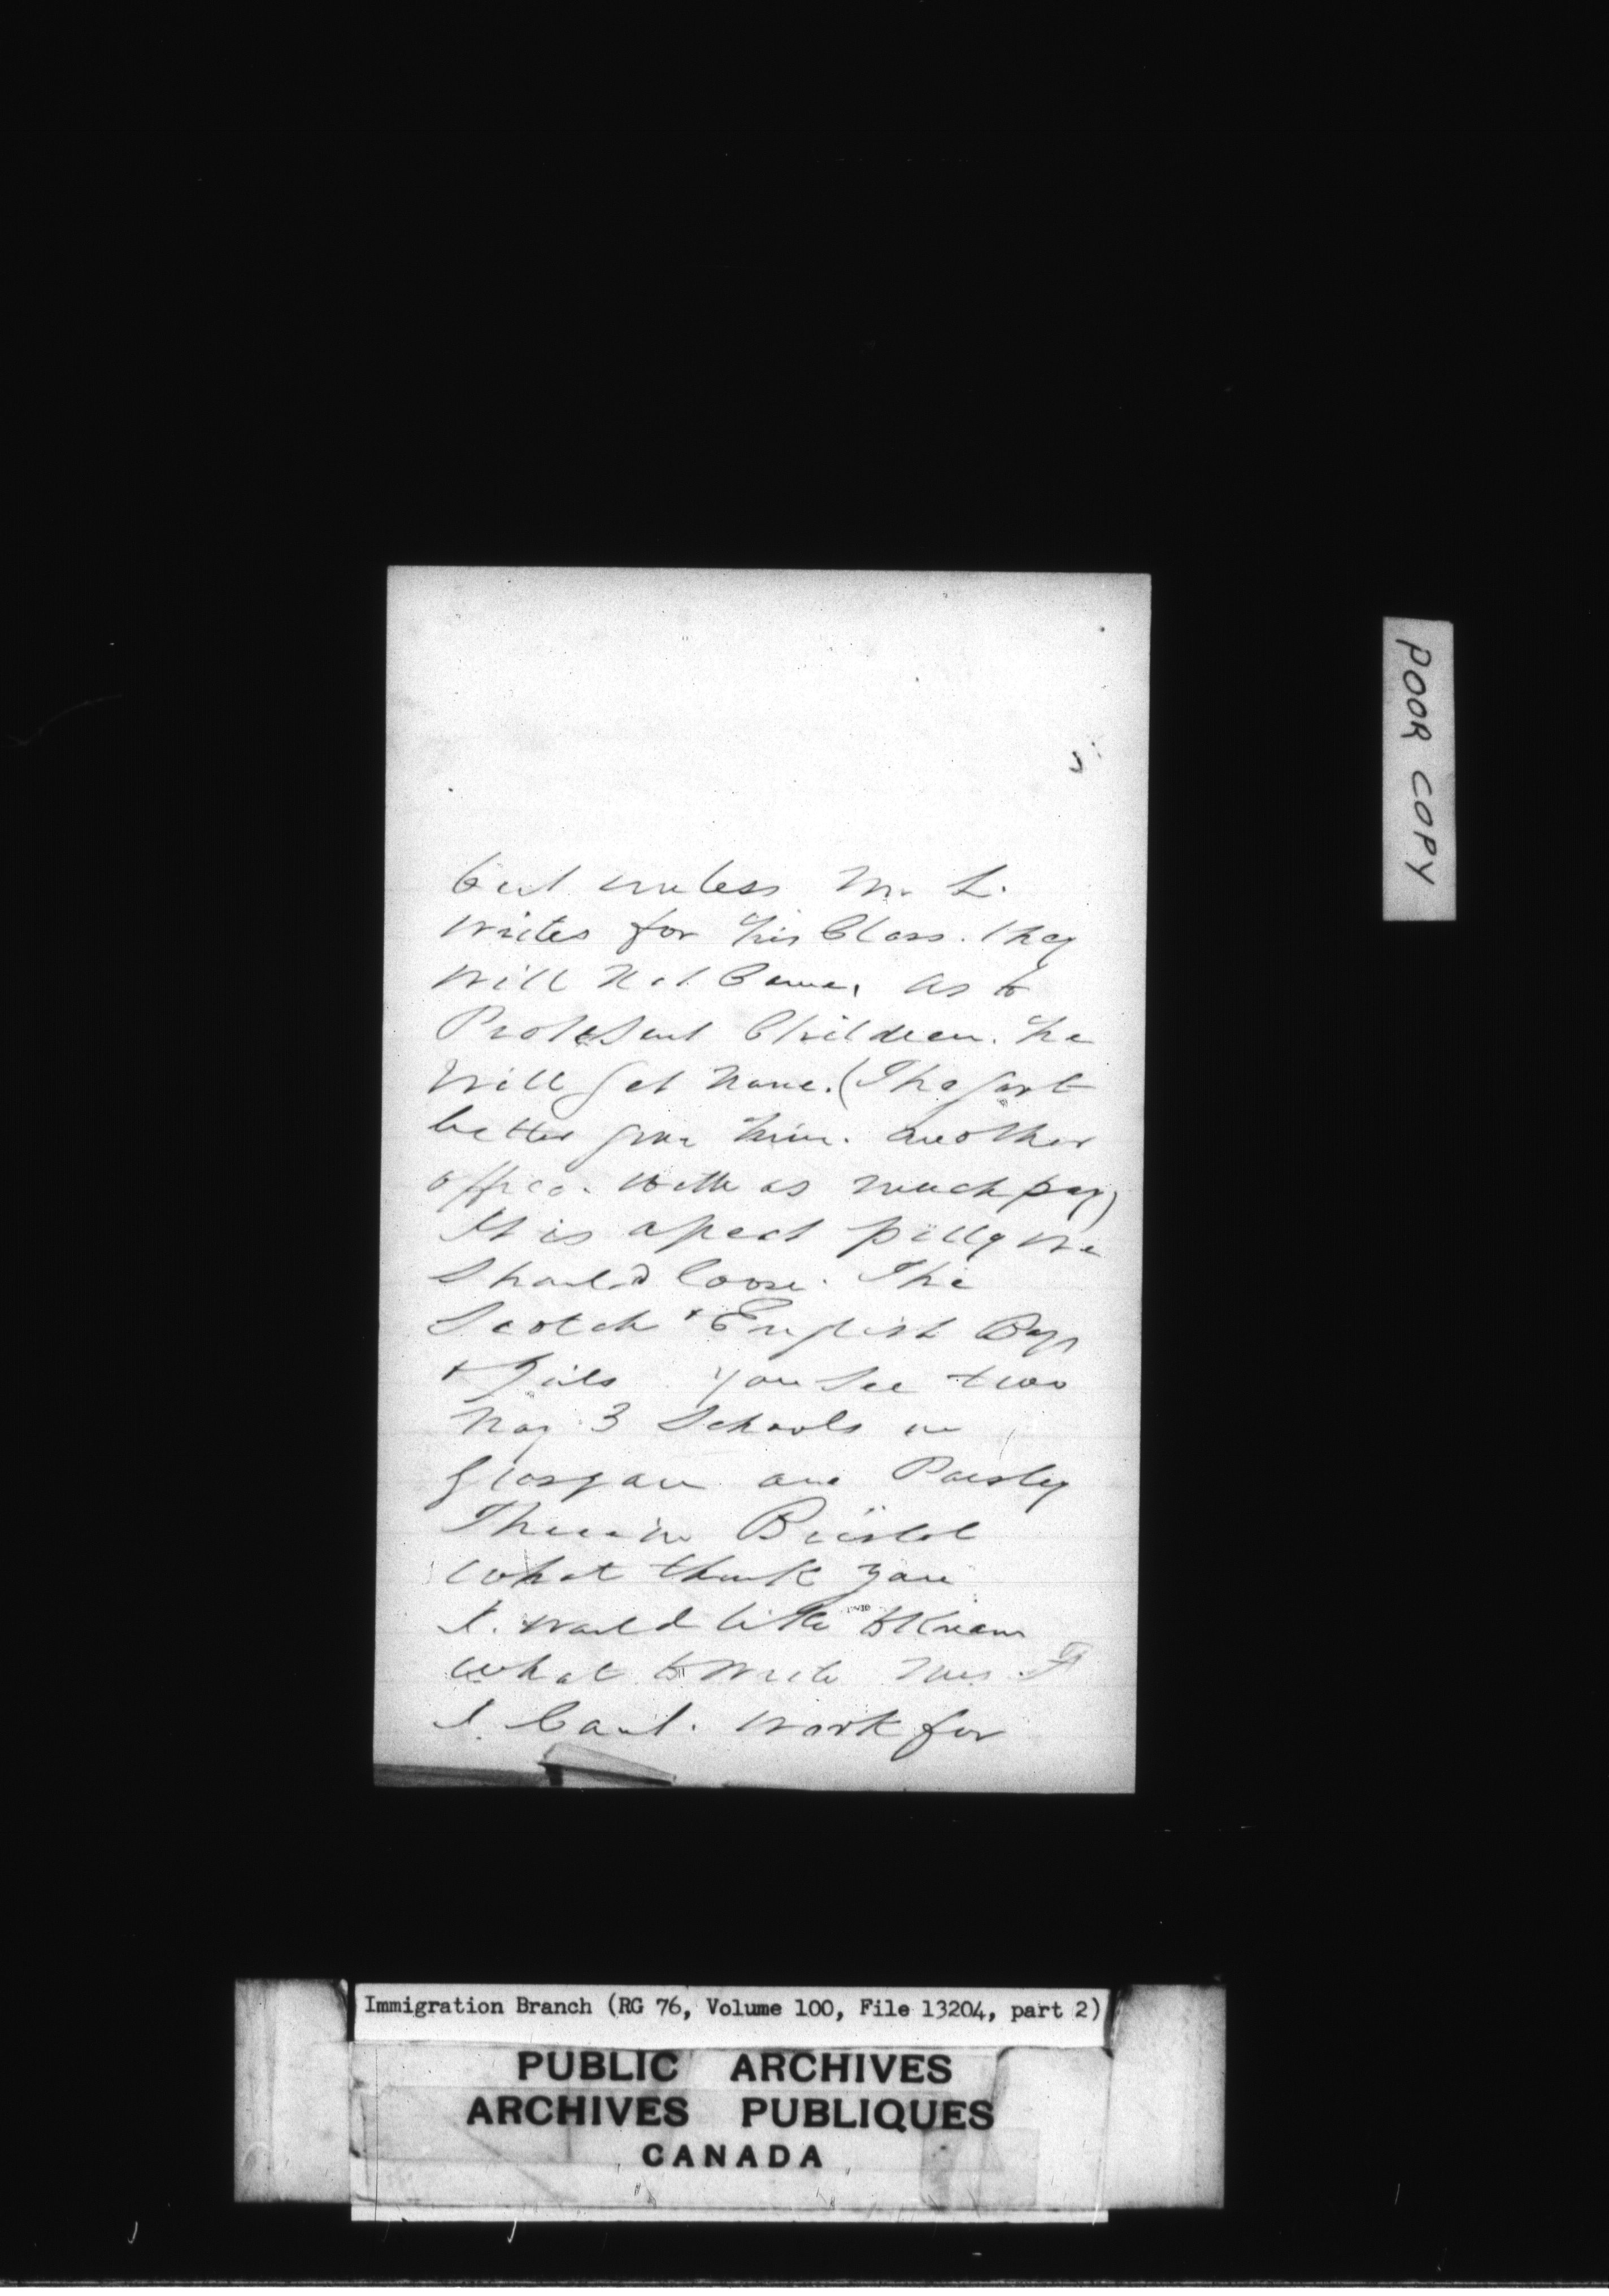 but unless Mr. L.
writes for his Class. they
will not Come. as to
Protesant Children. he
will get none. (The Govt
better give him. another
office. with as much pay)
It is a great pitty we
Should loose. The
Scotch & English Boys
& Girls you See two
nay 3 Schools in
Glasgow one Paisley
Three in Bristol
what think you
I. would like to Know
what to write Mrs. F
I Cant. work for
POOR COPY
Immigration Branch (RG 76, Volume 100, File 13204, part 2)
PUBLIC ARCHIVES
ARCHIVES PUBLIQUES
CANADA